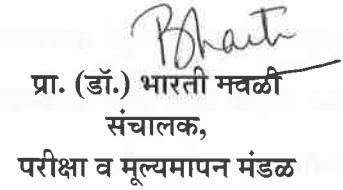 Bharti
प्रा. (डॉ.) भारती मवळी
संचालक,
परीक्षा व मूल्यमापन मंडळ